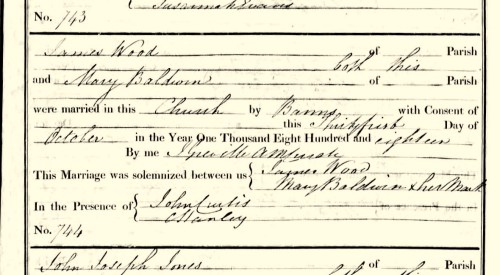 Susannah Evans
No. 743
James Wood of Parish
both this
and Mary Baldwin of Parish
were married in this Church by Banns with Consent of
this Thirty first Day of
October in the Year One Thousand Eight Hundred and eighteen
By me
This Marriage was solemnized between us { James Wood
Mary Baldwin X her Mark
In the Presence of { John Curtis
C Stanley
No. 744
John Joseph Jones of Parish